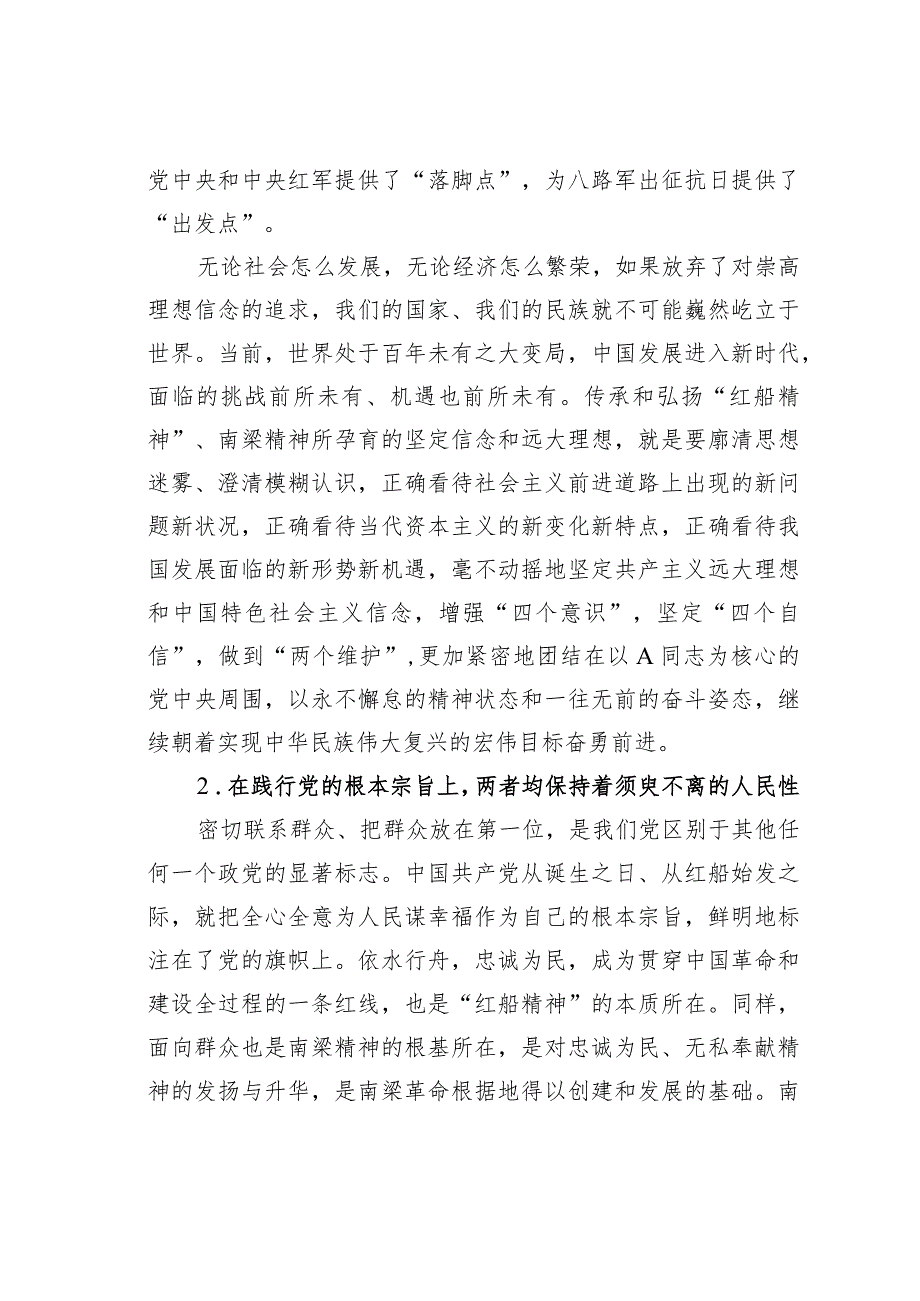 党中央和中央红军提供了“落脚点”，为八路军出征抗日提供了
“出发点”。
无论社会怎么发展，无论经济怎么繁荣，如果放弃了对崇高
理想信念的追求，我们的国家、我们的民族就不可能巍然屹立于
世界。当前，世界处于百年未有之大变局，中国发展进入新时代，
面临的挑战前所未有、机遇也前所未有。传承和弘扬“红船精
神”、南梁精神所孕育的坚定信念和远大理想，就是要廓清思想
迷雾、澄清模糊认识，正确看待社会主义前进道路上出现的新问
题新状况，正确看待当代资本主义的新变化新特点，正确看待我
国发展面临的新形势新机遇，毫不动摇地坚定共产主义远大理想
和中国特色社会主义信念，增强“四个意识”，坚定“四个自
信”，做到“两个维护”,更加紧密地团结在以A同志为核心的
党中央周围，以永不懈怠的精神状态和一往无前的奋斗姿态，继
续朝着实现中华民族伟大复兴的宏伟目标奋勇前进。
2.在践行党的根本宗旨上，两者均保持着须臾不离的人民性
密切联系群众、把群众放在第一位，是我们党区别于其他任
何一个政党的显著标志。中国共产党从诞生之日、从红船始发之
际，就把全心全意为人民谋幸福作为自己的根本宗旨，鲜明地标
注在了党的旗帜上。依水行舟，忠诚为民，成为贯穿中国革命和
建设全过程的一条红线，也是“红船精神”的本质所在。同样，
面向群众也是南梁精神的根基所在，是对忠诚为民、无私奉献精
神的发扬与升华，是南梁革命根据地得以创建和发展的基础。南